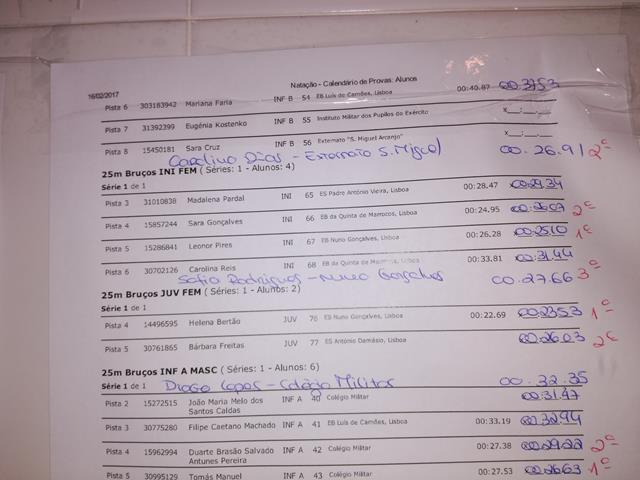 16/02/2017 Natação - Calendário de Provas: Alunos
Pista 6 303183942 Mariana Faria INF B 54 EB Luís de Camões, Lisboa 00:40.87 00:37.53
Pista 7 31392399 Eugénia Kostenko INF B 55 Instituto Militar dos Pupilos do Exército x__:__.__
Pista 8 15450181 Sara Cruz INF B 56 Externato "S. Miguel Arcanjo" x__:__.__
Carolina Dias - Externato S. Miguel 00:26.91 2ª
25m Bruços INI FEM ( Séries: 1 - Alunos: 4)
Série 1 de 1
Pista 3 31010838 Madalena Pardal INI 65 ES Padre António Vieira, Lisboa 00:28.47 00:29.34
Pista 4 15857244 Sara Gonçalves INI 66 EB da Quinta de Marrocos, Lisboa 00:24.95 00:26.07 2ª
Pista 5 15286841 Leonor Pires INI 67 EB Nuno Gonçalves, Lisboa 00:26.28 00:25.10 1ª
Pista 6 30702126 Carolina Reis INI 68 EB da Quinta de Marrocos, Lisboa 00:33.81 00:31.44
Sofia Rodrigues - Nuno Gonçalves 00:27.66 3ª
25m Bruços JUV FEM ( Séries: 1 - Alunos: 2)
Série 1 de 1
Pista 4 14496595 Helena Bertão JUV 76 ES Nuno Gonçalves, Lisboa 00:22.69 00:23.53 1ª
Pista 5 30761865 Bárbara Freitas JUV 77 ES António Damásio, Lisboa 00:26.03 2ª
25m Bruços INF A MASC ( Séries: 1 - Alunos: 6)
Série 1 de 1 Diogo Lopes - Colégio Militar 00:32.35
Pista 2 15272515 João Maria Melo dos Santos Caldas INF A 40 Colégio Militar 00:31.47
Pista 3 30775280 Filipe Caetano Machado INF A 41 EB Luís de Camões, Lisboa 00:33.19 00:32.94
Pista 4 15962994 Duarte Brasão Salvado Antunes Pereira INF A 42 Colégio Militar 00:27.38 00:29.22 2ª
Pista 5 30995129 Tomás Manuel INF A 43 Colégio Militar 00:27.53 00:26.63 1ª